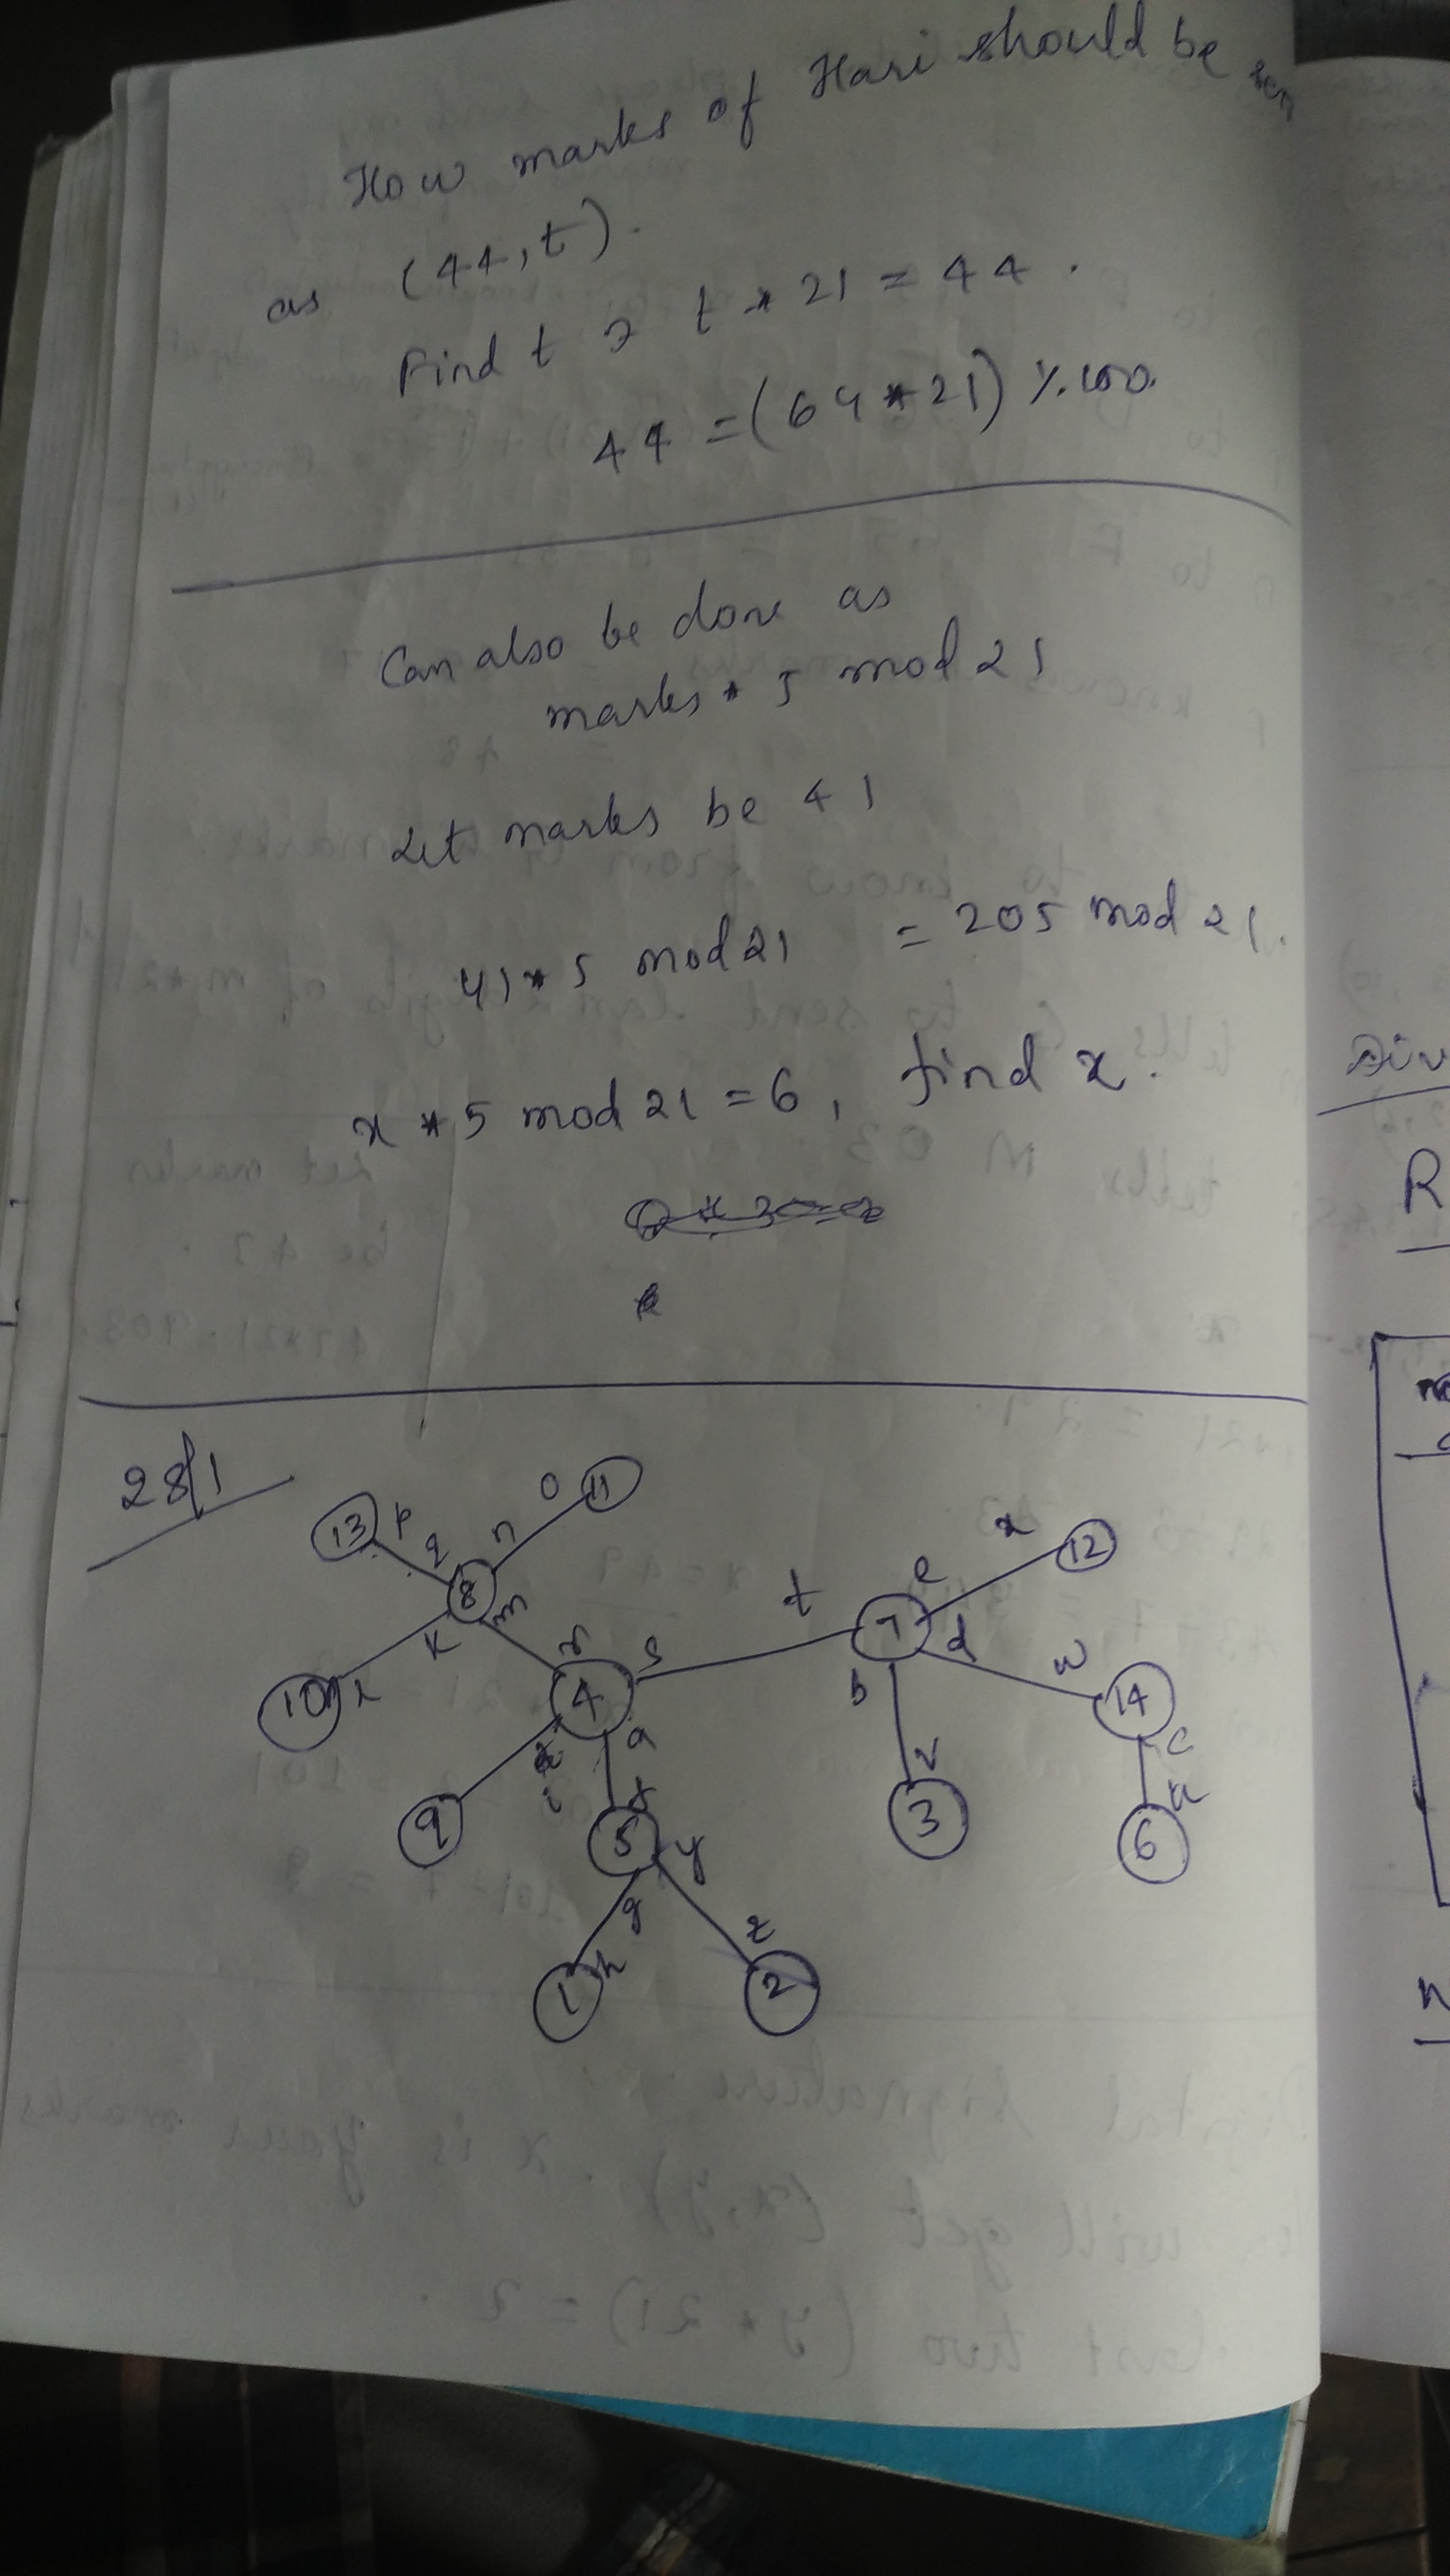 How marks of Hari should be
as (44, t).
Find t ∋ t * 21 = 44.
44 = (64 * 21) %. 100.
Can also be done as
marks * 5 mod 21
Let marks be 41
41 * 5 mod 21 = 205 mod 21.
x * 5 mod 21 = 6, find x.
28/1
13 p q 8 n o 11
x 12
e
t 7 d w 14
k m r s b
10 4
i a v c
9 f 3 u
5 y 6
g z
1 h 2
Div
R